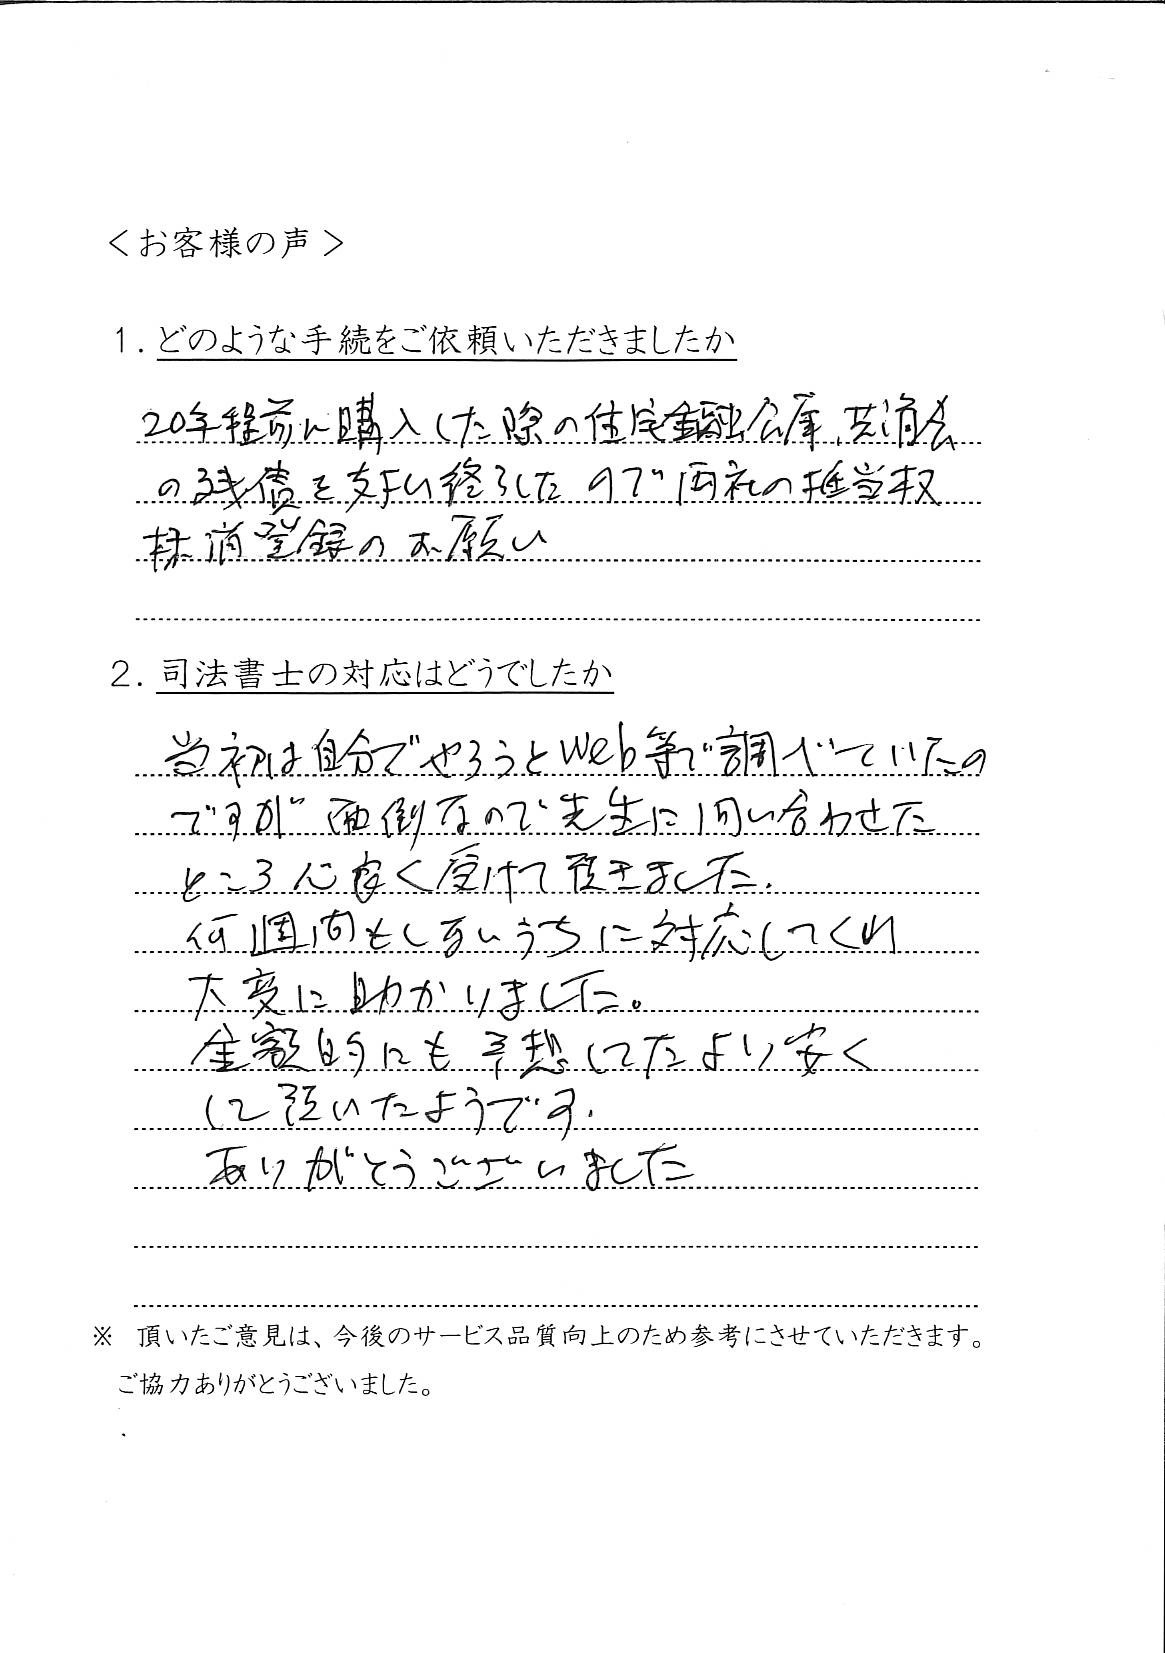 ＜お客様の声＞
1. どのような手続をご依頼いただきましたか
20年程前に購入した際の住宅金融公庫、共済会
の残債を支払い終了したので両社の抵当権
抹消登録のお願い
2. 司法書士の対応はどうでしたか
当初は自分でやろうとWeb等で調べていたの
ですが面倒なので先生に問い合わせた
ところ心良く受けて頂きました.
何週間もしないうちに対応してくれ
大変に助かりました。
金額的にも予想してたより安く
して頂いたようです.
ありがとうございました
※　頂いたご意見は、今後のサービス品質向上のため参考にさせていただきます。
ご協力ありがとうございました。